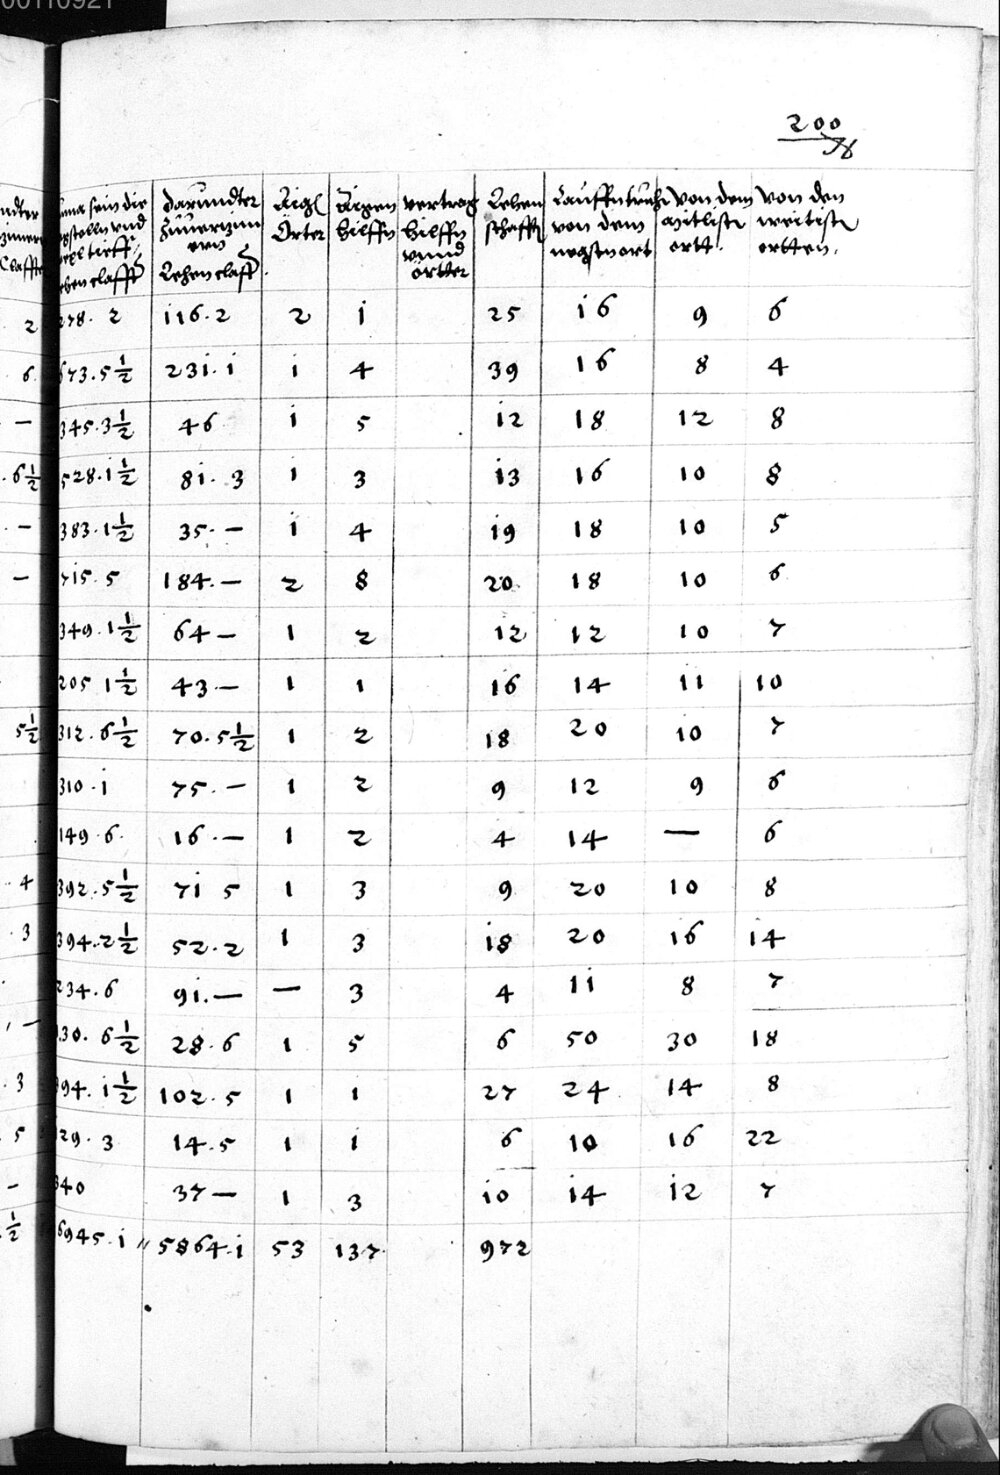 00110921
200
darundter
Lehen claff
Aigen
hilffen
vertrag
hilffn
vnnd
örtter
Lehen
schafft
von dem
negstn ort
von dem
mitlisten
ortt.
von den
weitist
ortten.
2 278. 2 116. 2 2 1 25 16 9 6
6 673. 5 1/2 231. 1 1 4 39 16 8 4
— 345. 3 1/2 46 1 5 12 18 12 8
. 6 1/2 528. 1 1/2 81. 3 1 3 13 16 10 8
. — 383. 1 1/2 35. — 1 4 19 18 10 5
— 715. 5 184. — 2 8 20 18 10 6
349. 1 1/2 64 — 1 2 12 12 10 7
205 1 1/2 43 — 1 1 16 14 11 10
5 1/2 312. 6 1/2 70. 5 1/2 1 2 18 20 10 7
310. 1 75. — 1 2 9 12 9 6
149. 6. 16. — 1 2 4 14 — 6
. 4 392. 5 1/2 71 5 1 3 9 20 10 8
. 3 394. 2 1/2 52. 2 1 3 18 20 16 14
234. 6 91. — — 3 4 11 8 7
— 30. 6 1/2 28. 6 1 5 6 50 30 18
. 3 94. 1 1/2 102. 5 1 1 27 24 14 8
5 29. 3 14. 5 1 1 6 10 16 22
— 340 37 — 1 3 10 14 12 7
1/2 6945. 1 5864. 1 53 137. 972